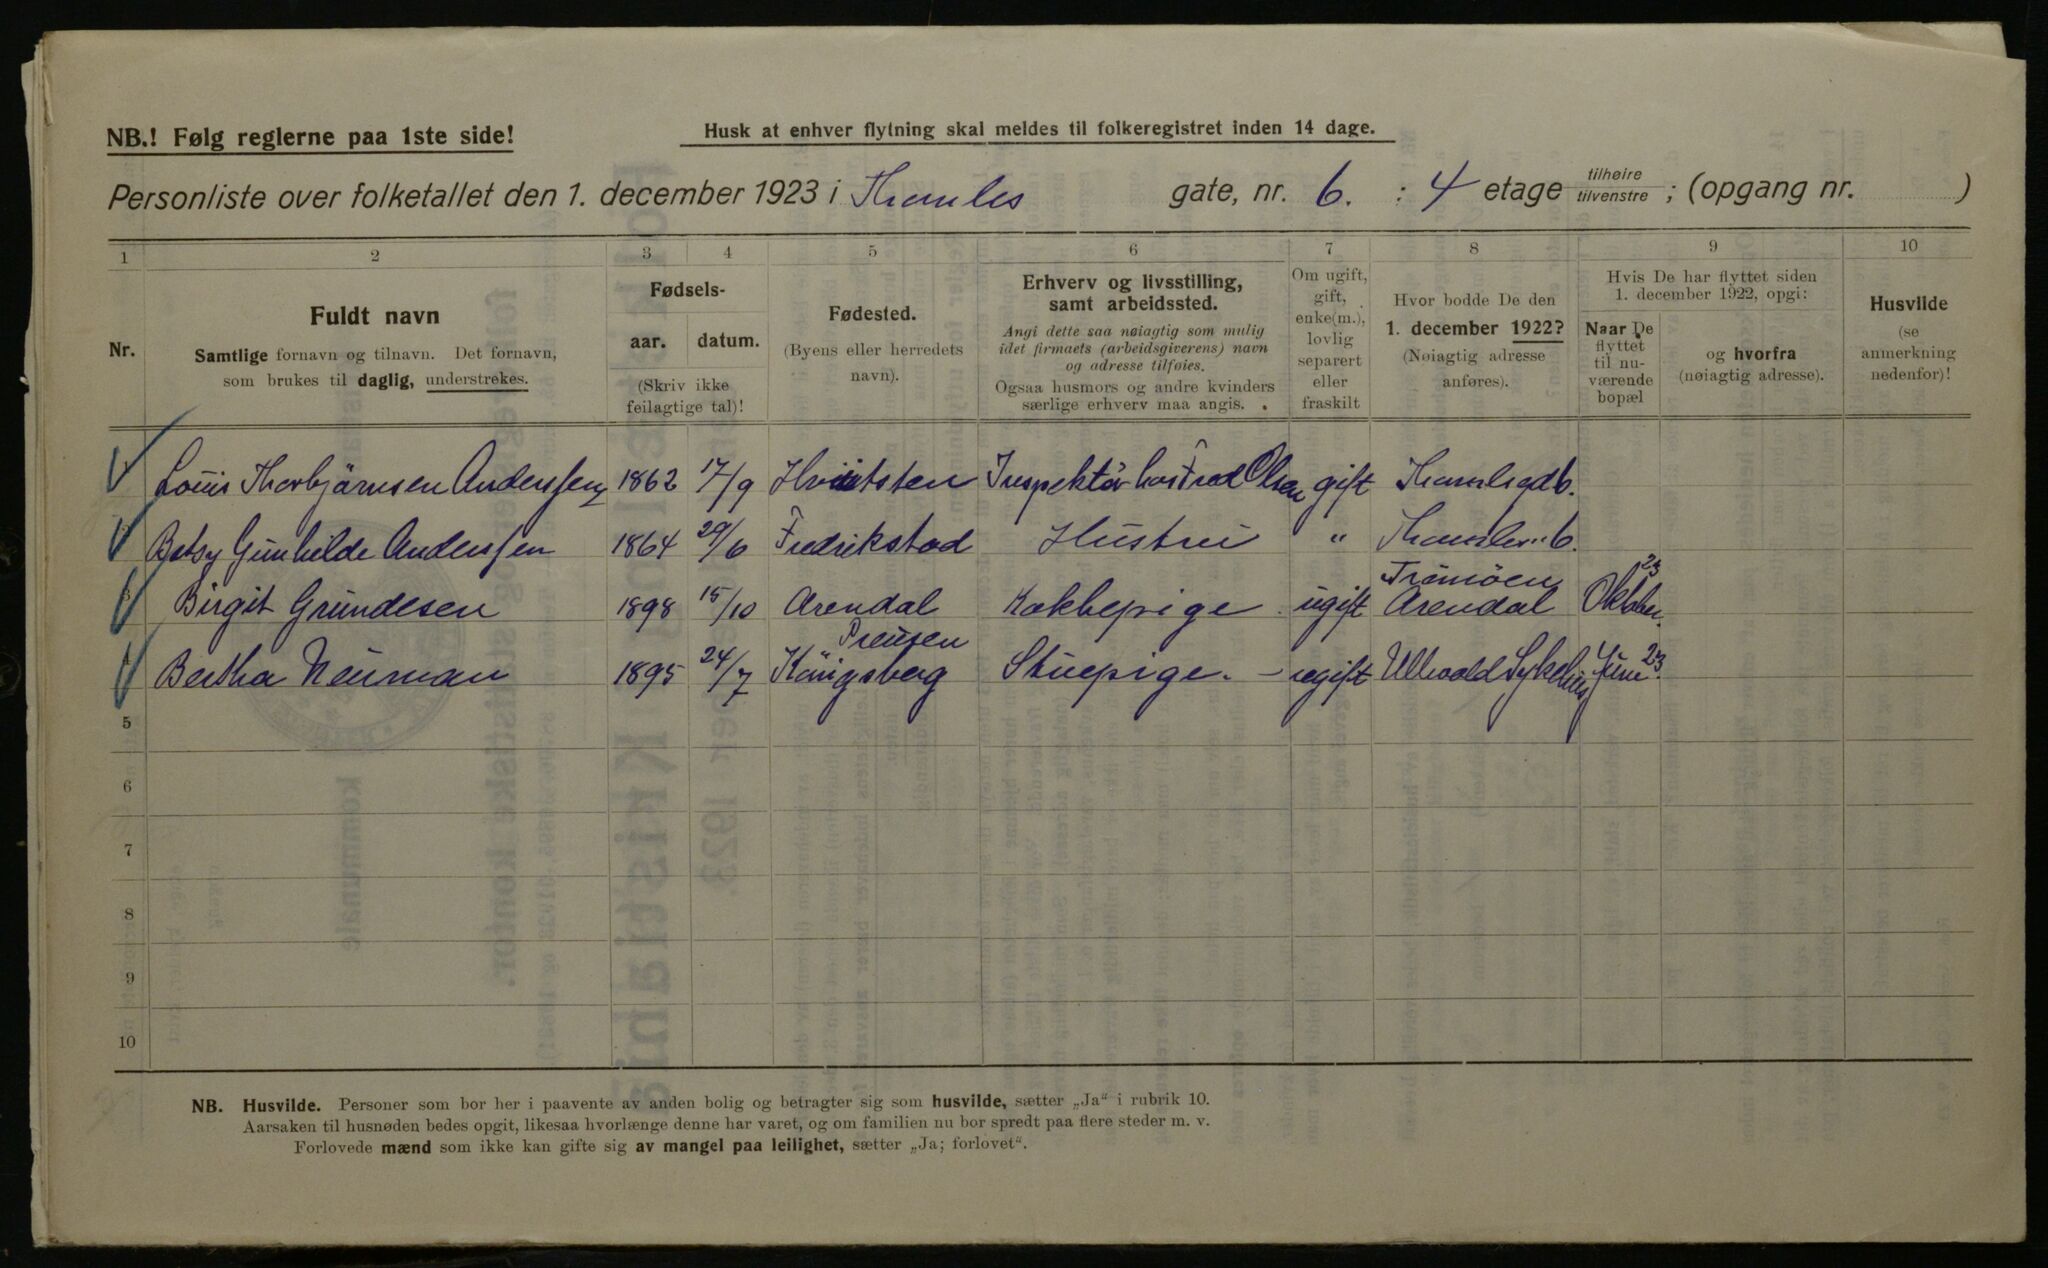 NB.! Følg reglerne paa 1ste side!
Husk at enhver flytning skal meldes til folkeregistret inden 14 dage.
Personliste over folketallet den 1. december 1923 i Thomles gate, nr. 6. : 4 etage tilhøire tilvenstre ; (opgang nr. )
1 2 3 4 5 6 7 8 9 10
Nr.
Fuldt navn
Samtlige fornavn og tilnavn. Det fornavn,
som brukes til daglig, understrekes.
Fødsels-
aar. datum.
(Skriv ikke
feilagtige tal)!
Fødested.
(Byens eller herredets
navn).
Erhverv og livsstilling,
samt arbeidssted.
Angi dette saa nøiagtig som mulig
idet firmaets (arbeidsgiverens) navn
og adresse tilføies.
Ogsaa husmors og andre kvinders
særlige erhverv maa angis.
Om ugift,
gift,
enke(m.),
lovlig
separert
eller
fraskilt
Hvor bodde De den
1. december 1922?
(Nøiagtig adresse
anføres).
Hvis De har flyttet siden
1. december 1922, opgi:
Naar De
flyttet
til nu-
værende
bopæl
og hvorfra
(nøiagtig adresse).
Husvilde
(se
anmerkning
nedenfor)!
Louis Thorbjörnsen Anderssen 1862 17/9 Hvitsten Inspektör hos Fred Olsen gift
Betsy Gunhilde Anderssen 1864 29/6 Fredrikstad Hustru "
Birgit Grundesen 1898 15/10 Arendal Kokkepige ugift Tromöen Arendal Oktober 23
Bertha Neuman 1895 24/7 Preusen Königsberg Stuepige. - ugift Ullevold Juni 23
5
6
7
8
9
10
NB. Husvilde. Personer som bor her i paavente av anden bolig og betragter sig som husvilde, sætter „Ja" i rubrik 10.
Aarsaken til husnøden bedes opgit, likesaa hvorlænge denne har varet, og om familien nu bor spredt paa flere steder m. v.
Forlovede mænd som ikke kan gifte sig av mangel paa leilighet, sætter „Ja; forlovet".